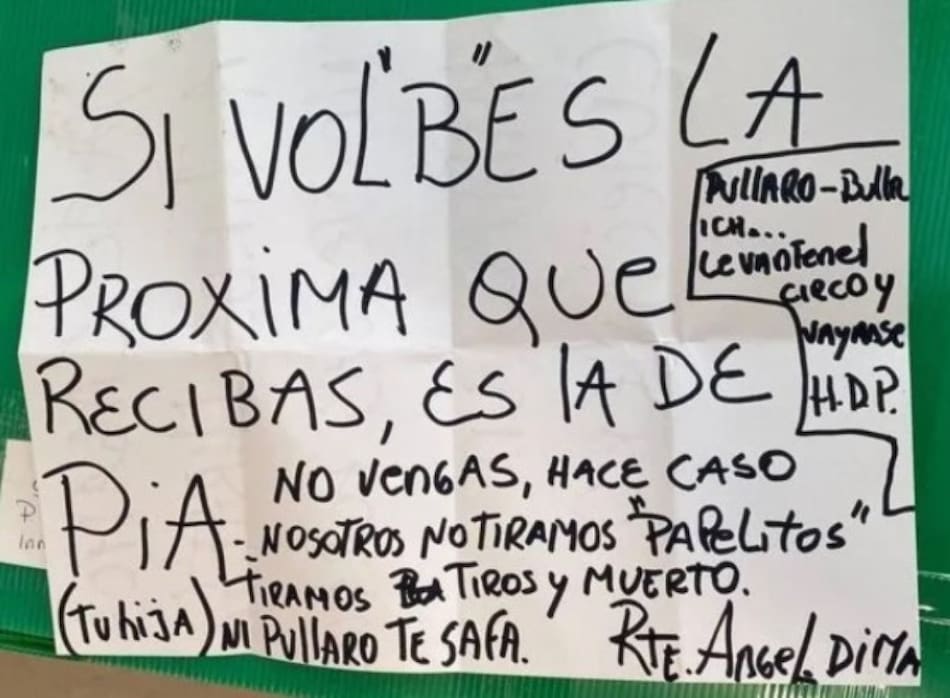 SI VOL"B"ES LA
PROXIMA QUE
RECIBAS, ES LA DE
PIA
(TU hijA)
PULLARO-Bullr
ICH...
LEVANTEN el
CIRCO Y
VAYANSE
H.D.P.
NO VENGAS, HACE CASO
NOSOTROS NO TIRAMOS "PAPELITOS"
TIRAMOS TIROS Y MUERTO.
NI PULLARO TE SAFA.
RTE. ANGEL DI MA